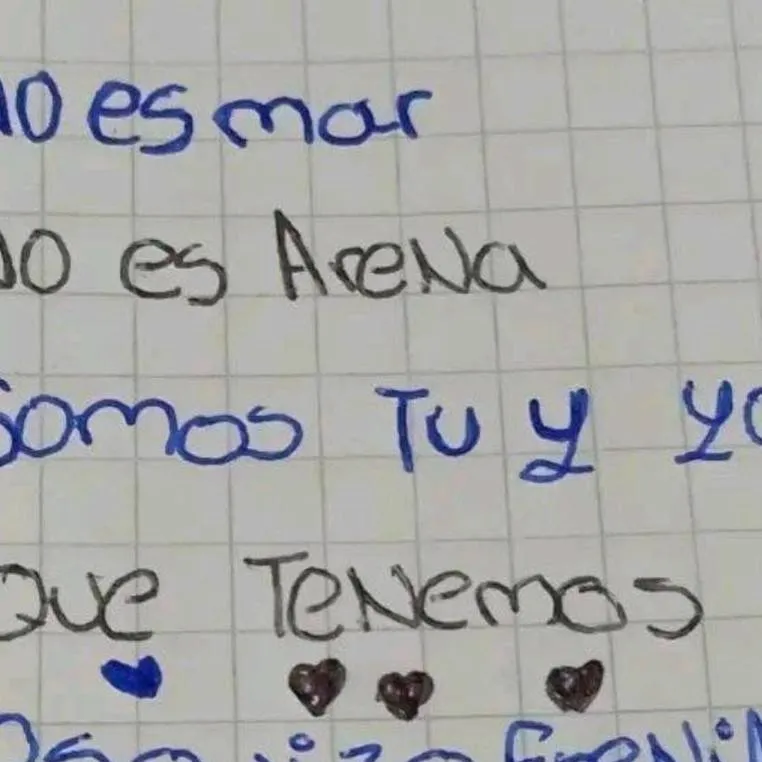 NO es mar
NO es AreNa
Somos Tu y yo
Que TeNemos